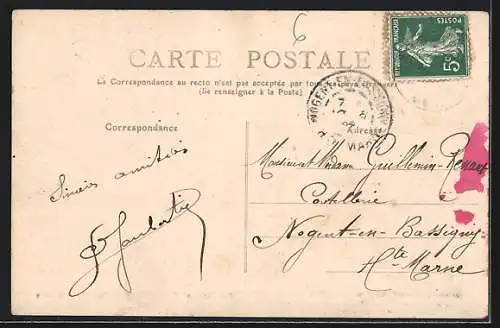 6
CARTE POSTALE
POSTES
REPUBLIQUE FRANÇAISE
5c
La Correspondance au recto n'est pas acceptée par tous
(Se renseigner à la Poste)
NOGENT-EN-BASSIGNY
Correspondance
Adresse
Sincères amitiés
Monsieur et Madame Guillemin-Renaut
Coutellerie
Nogent-en-Bassigny
Hte Marne